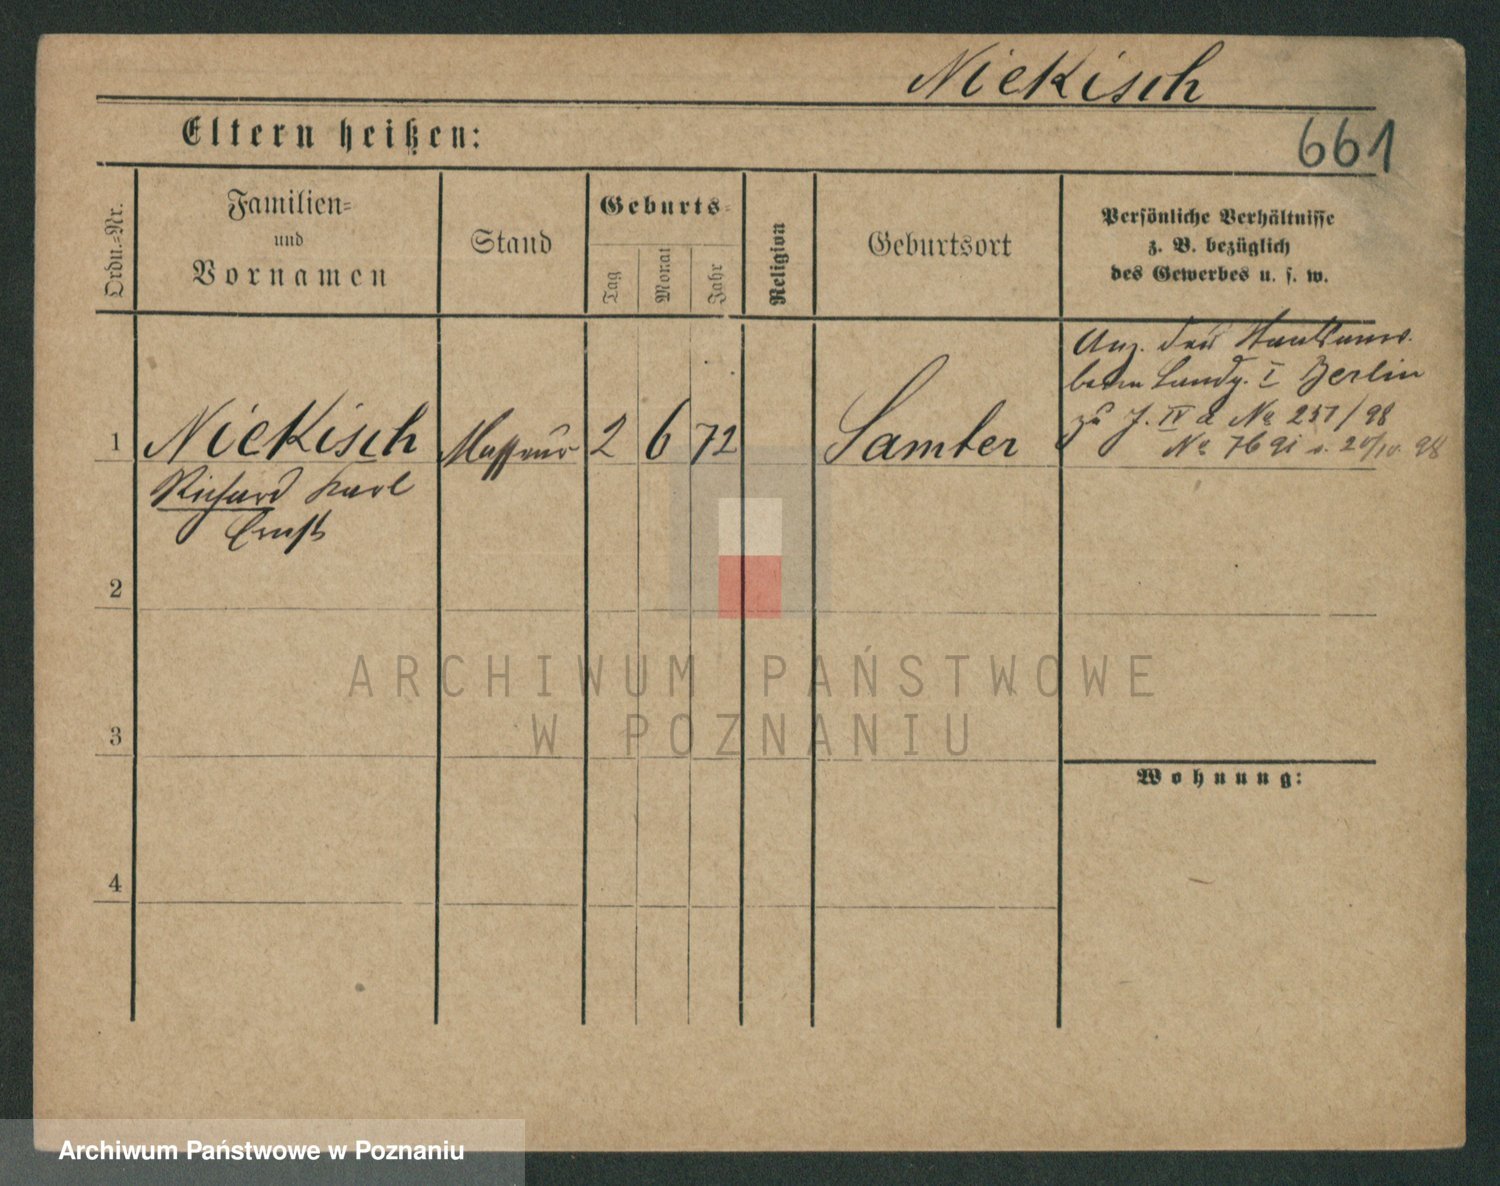 Niekisch
Eltern heißen:
661
Ordn.=Nr.
Familien=
und
Vornamen
Stand
Geburts=
Tag
Monat
Jahr
Religion
Geburtsort
Persönliche Verhältnisse
z. B. bezüglich
des Gewerbes u. s. w.
1
Niekisch
Richard Karl
Ernst
Masseur
2
6
72
Samter
Anz. des Staatsanw.
beim Landg. I Berlin
zu J. IV d No 257/98
No
98
2
3
4
Wohnung:
ARCHIWUM PAŃSTWOWE
W POZNANIU
Archiwum Państwowe w Poznaniu